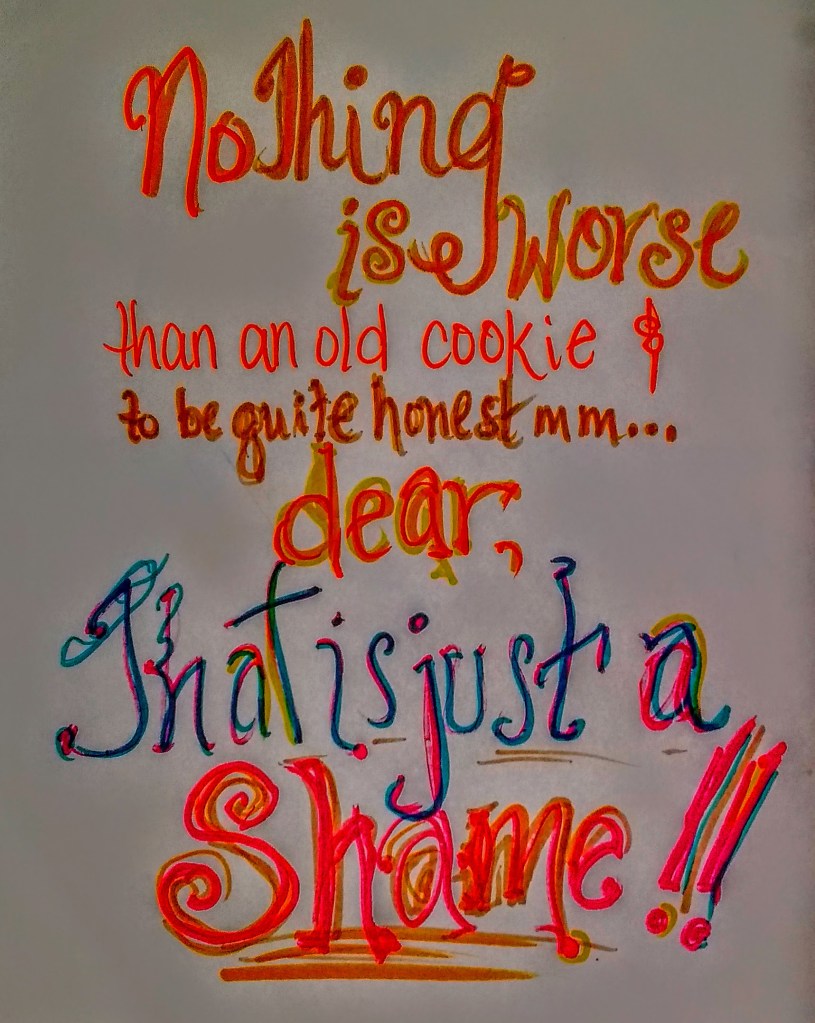 Nothing
is worse
than an old cookie &
to be quite honest mm...
dear,
That is just a
Shame!!